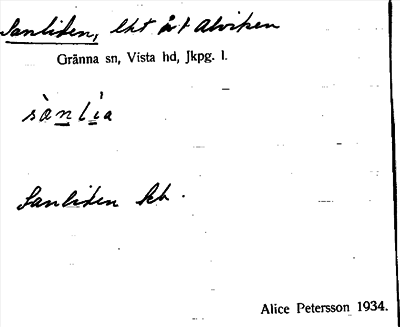 Sanliden, lht åt Alviken
Gränna sn, Vista hd, Jkpg. l.
sànlìa
Sanliden kb.
Alice Petersson 1934.